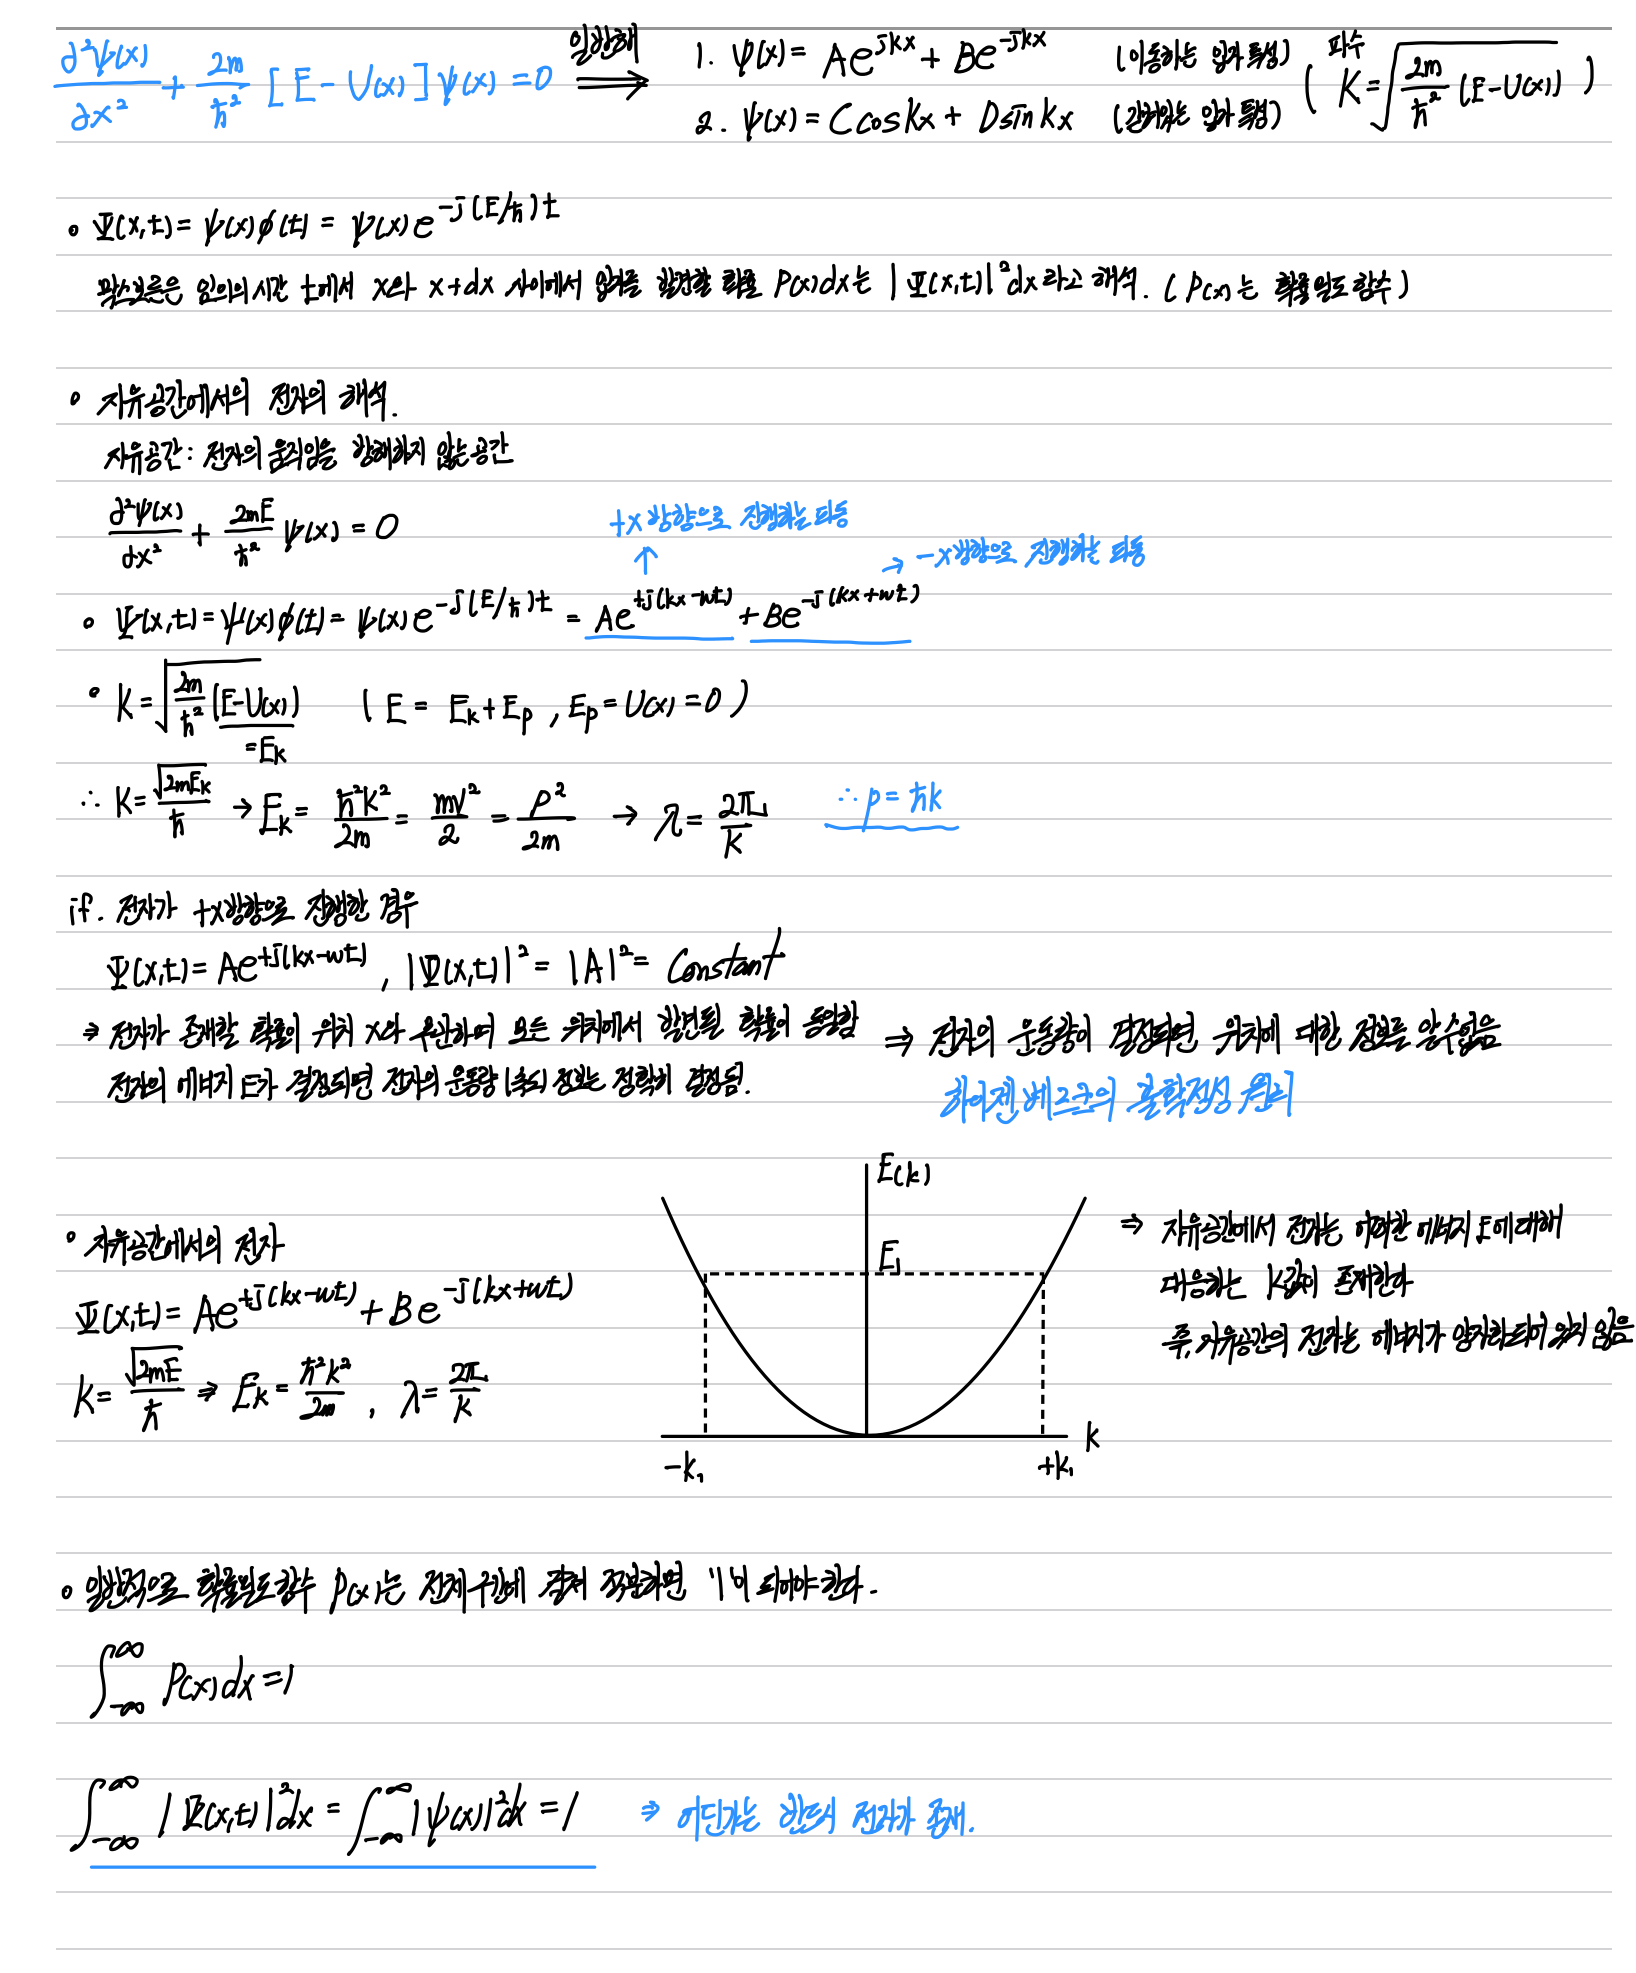 ∂²ψ(x)/∂x² + 2m/ħ² [E - U(x)] ψ(x) = 0 일반해 ⟹ 1. ψ(x) = Ae^{jkx} + Be^{-jkx} (이동하는 입자 특성) ( 파수 K = √(2m/ħ² (E-U(x))) )
2. ψ(x) = C cos kx + D sin kx (갇혀있는 입자 특성)
∘ Ψ(x,t) = ψ(x)φ(t) = ψ(x)e^{-j(E/ħ)t}
막스보른은 임의의 시간 t에서 x와 x+dx 사이에서 입자를 발견할 확률 P(x)dx는 |Ψ(x,t)|²dx 라고 해석. (P(x)는 확률밀도함수)
∘ 자유공간에서의 전자의 해석.
자유공간: 전자의 움직임을 방해하지 않는 공간
∂²ψ(x)/∂x² + 2mE/ħ² ψ(x) = 0
+x방향으로 진행하는 파동
↑ → -x방향으로 진행하는 파동
∘ Ψ(x,t) = ψ(x)φ(t) = ψ(x)e^{-j(E/ħ)t} = Ae^{+j(kx-wt)} + Be^{-j(kx+wt)}
∘ K = √(2m/ħ² (E-U(x))) (E = Ek + Ep, Ep = U(x) = 0)
= Ek
∴ K = √(2mEk)/ħ → Ek = ħ²k²/2m = mv²/2 = p²/2m → λ = 2π/k ∴ p = ħk
if. 전자가 +x방향으로 진행한 경우
Ψ(x,t) = Ae^{+j(kx-wt)}, |Ψ(x,t)|² = |A|² = Constant
⇒ 전자가 존재할 확률이 위치 x와 무관하며 모든 위치에서 발견될 확률이 동일함 ⇒ 전자의 운동량이 결정되면 위치에 대한 정보를 알 수 없음
전자의 에너지 E가 결정되면 전자의 운동량(속도) 정보는 정확히 결정됨. 하이젠베르크의 불확정성 원리
E(k)
E₁
k
-k₁
+k₁
∘ 자유공간에서의 전자
Ψ(x,t) = Ae^{+j(kx-wt)} + Be^{-j(kx+wt)}
K = √(2mE)/ħ ⇒ Ek = ħ²k²/2m, λ = 2π/k
⇒ 자유공간에서 전자는 어떠한 에너지 E에 대해
대응하는 K값이 존재한다
즉, 자유공간의 전자는 에너지가 양자화되어 있지 않음
∘ 일반적으로 확률밀도함수 P(x)는 전체구간에 걸쳐 적분하면 "1"이 되어야 한다.
∫_{-∞}^{∞} P(x)dx = 1
∫_{-∞}^{∞} |Ψ(x,t)|²dx = ∫_{-∞}^{∞} |ψ(x)|²dx = 1 ⇒ 어딘가는 반드시 전자가 존재.